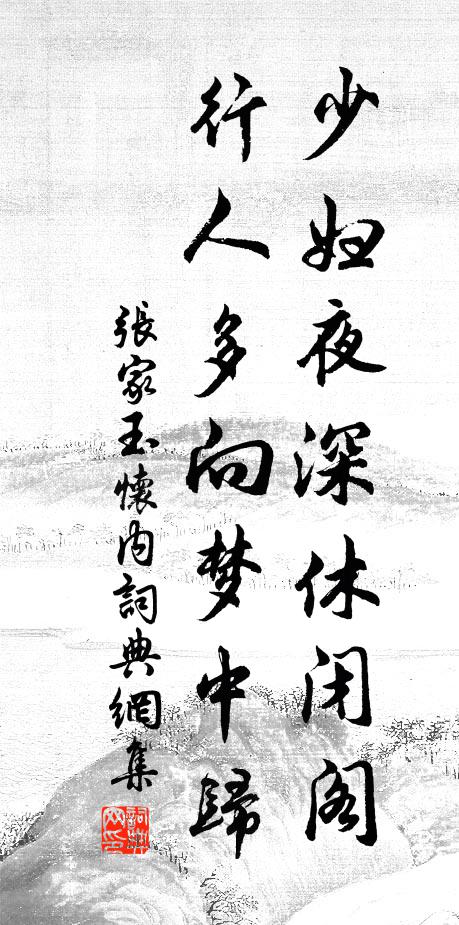 少妇夜深休闭阁
行人多向梦中歸
張家玉懷内詞典網集